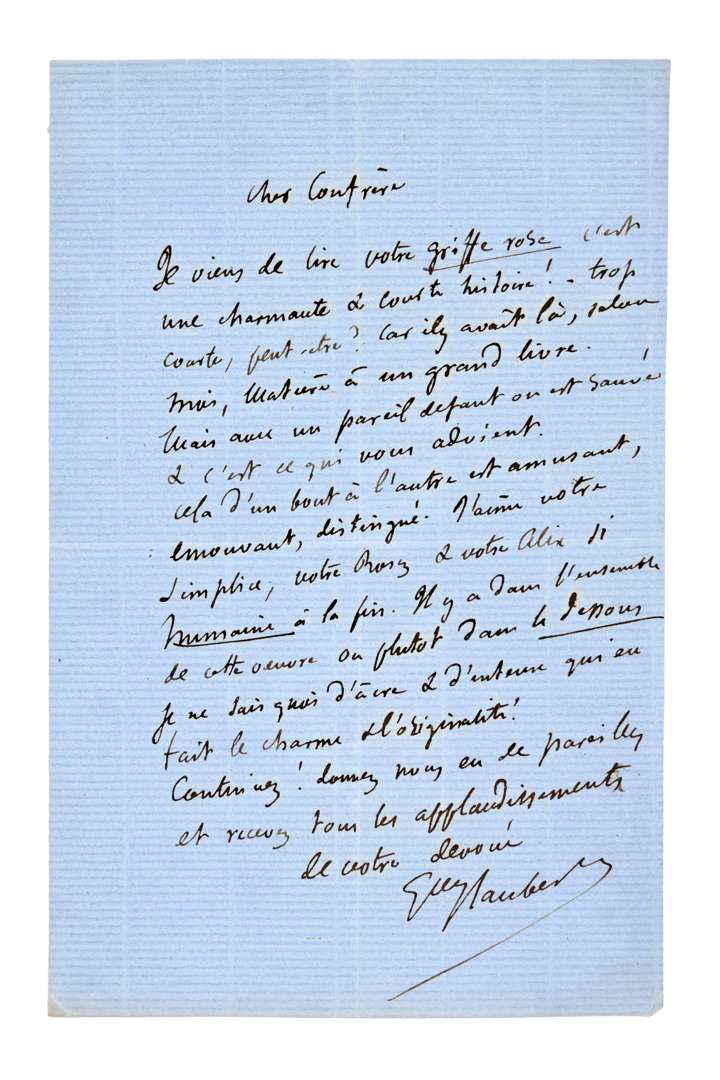 cher Confrère
Je viens de lire votre griffe rose c'est
une charmante & courte histoire! - trop
courte, peut-etre? car il y avait là, selon
moi, matière à un grand livre.
Mais avec un pareil defaut on est sauvé
& c'est ce qui vous advient.
cela d'un bout à l'autre est amusant,
emouvant, distingué. J'aime votre
Simplice, votre Rosez & votre Alix si
humaine à la fin. Il y a dans l'ensemble
de cette oeuvre ou plutot dans le dessous
je ne sais quoi d'âcre & d'intense qui en
fait le charme & l'originalité!
Continuez! donnez nous en de pareilles
et recevez tous les applaudissements
de votre devoué
Gve Flaubert